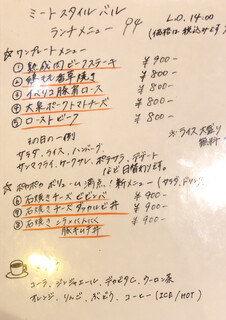 ミートスタイル バル
ランチメニュー P4
L.O. 14:00
(価格は税込みです)
☆ワンプレートメニュー
① 熟成肉ビーフステーキ ¥900-
② 鶏もも香草焼き ¥800-
③ イベリコ豚肩ロース ¥800-
④ 大泉ポークトマトチーズ ¥800-
⑤ ローストビーフ ¥800-
その日の一例
※ライス大盛り
無料
サラダ、ライス、ハンバーグ、
サンマフライ、ケークサレ、ポテサラ、
など日替わります。
☆ポカポカ ボリューム満点!新メニュー (サラダ、ドリンク
⑥ 石焼きチーズビビンバ ¥900-
⑦ 石焼きチーズタッカルビ丼 ¥900-
⑧ 石焼きニラにんにく
豚キムチ丼 ¥900-
コーラ、ジンジャエール、ウーロン茶
オレンジ、りんご、ぶどう、コーヒー(ICE/HOT)